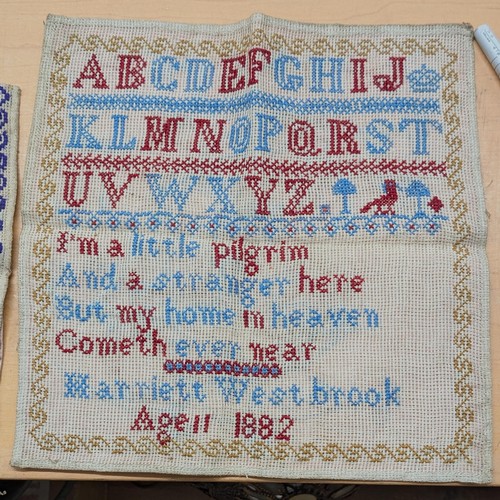 ABCDEFGHIJ
KLMNOPQRST
UVWXYZ
I'm a little pilgrim
And a stranger here
But my home in heaven
Cometh ever near
Harriett Westbrook
Age 11 1882